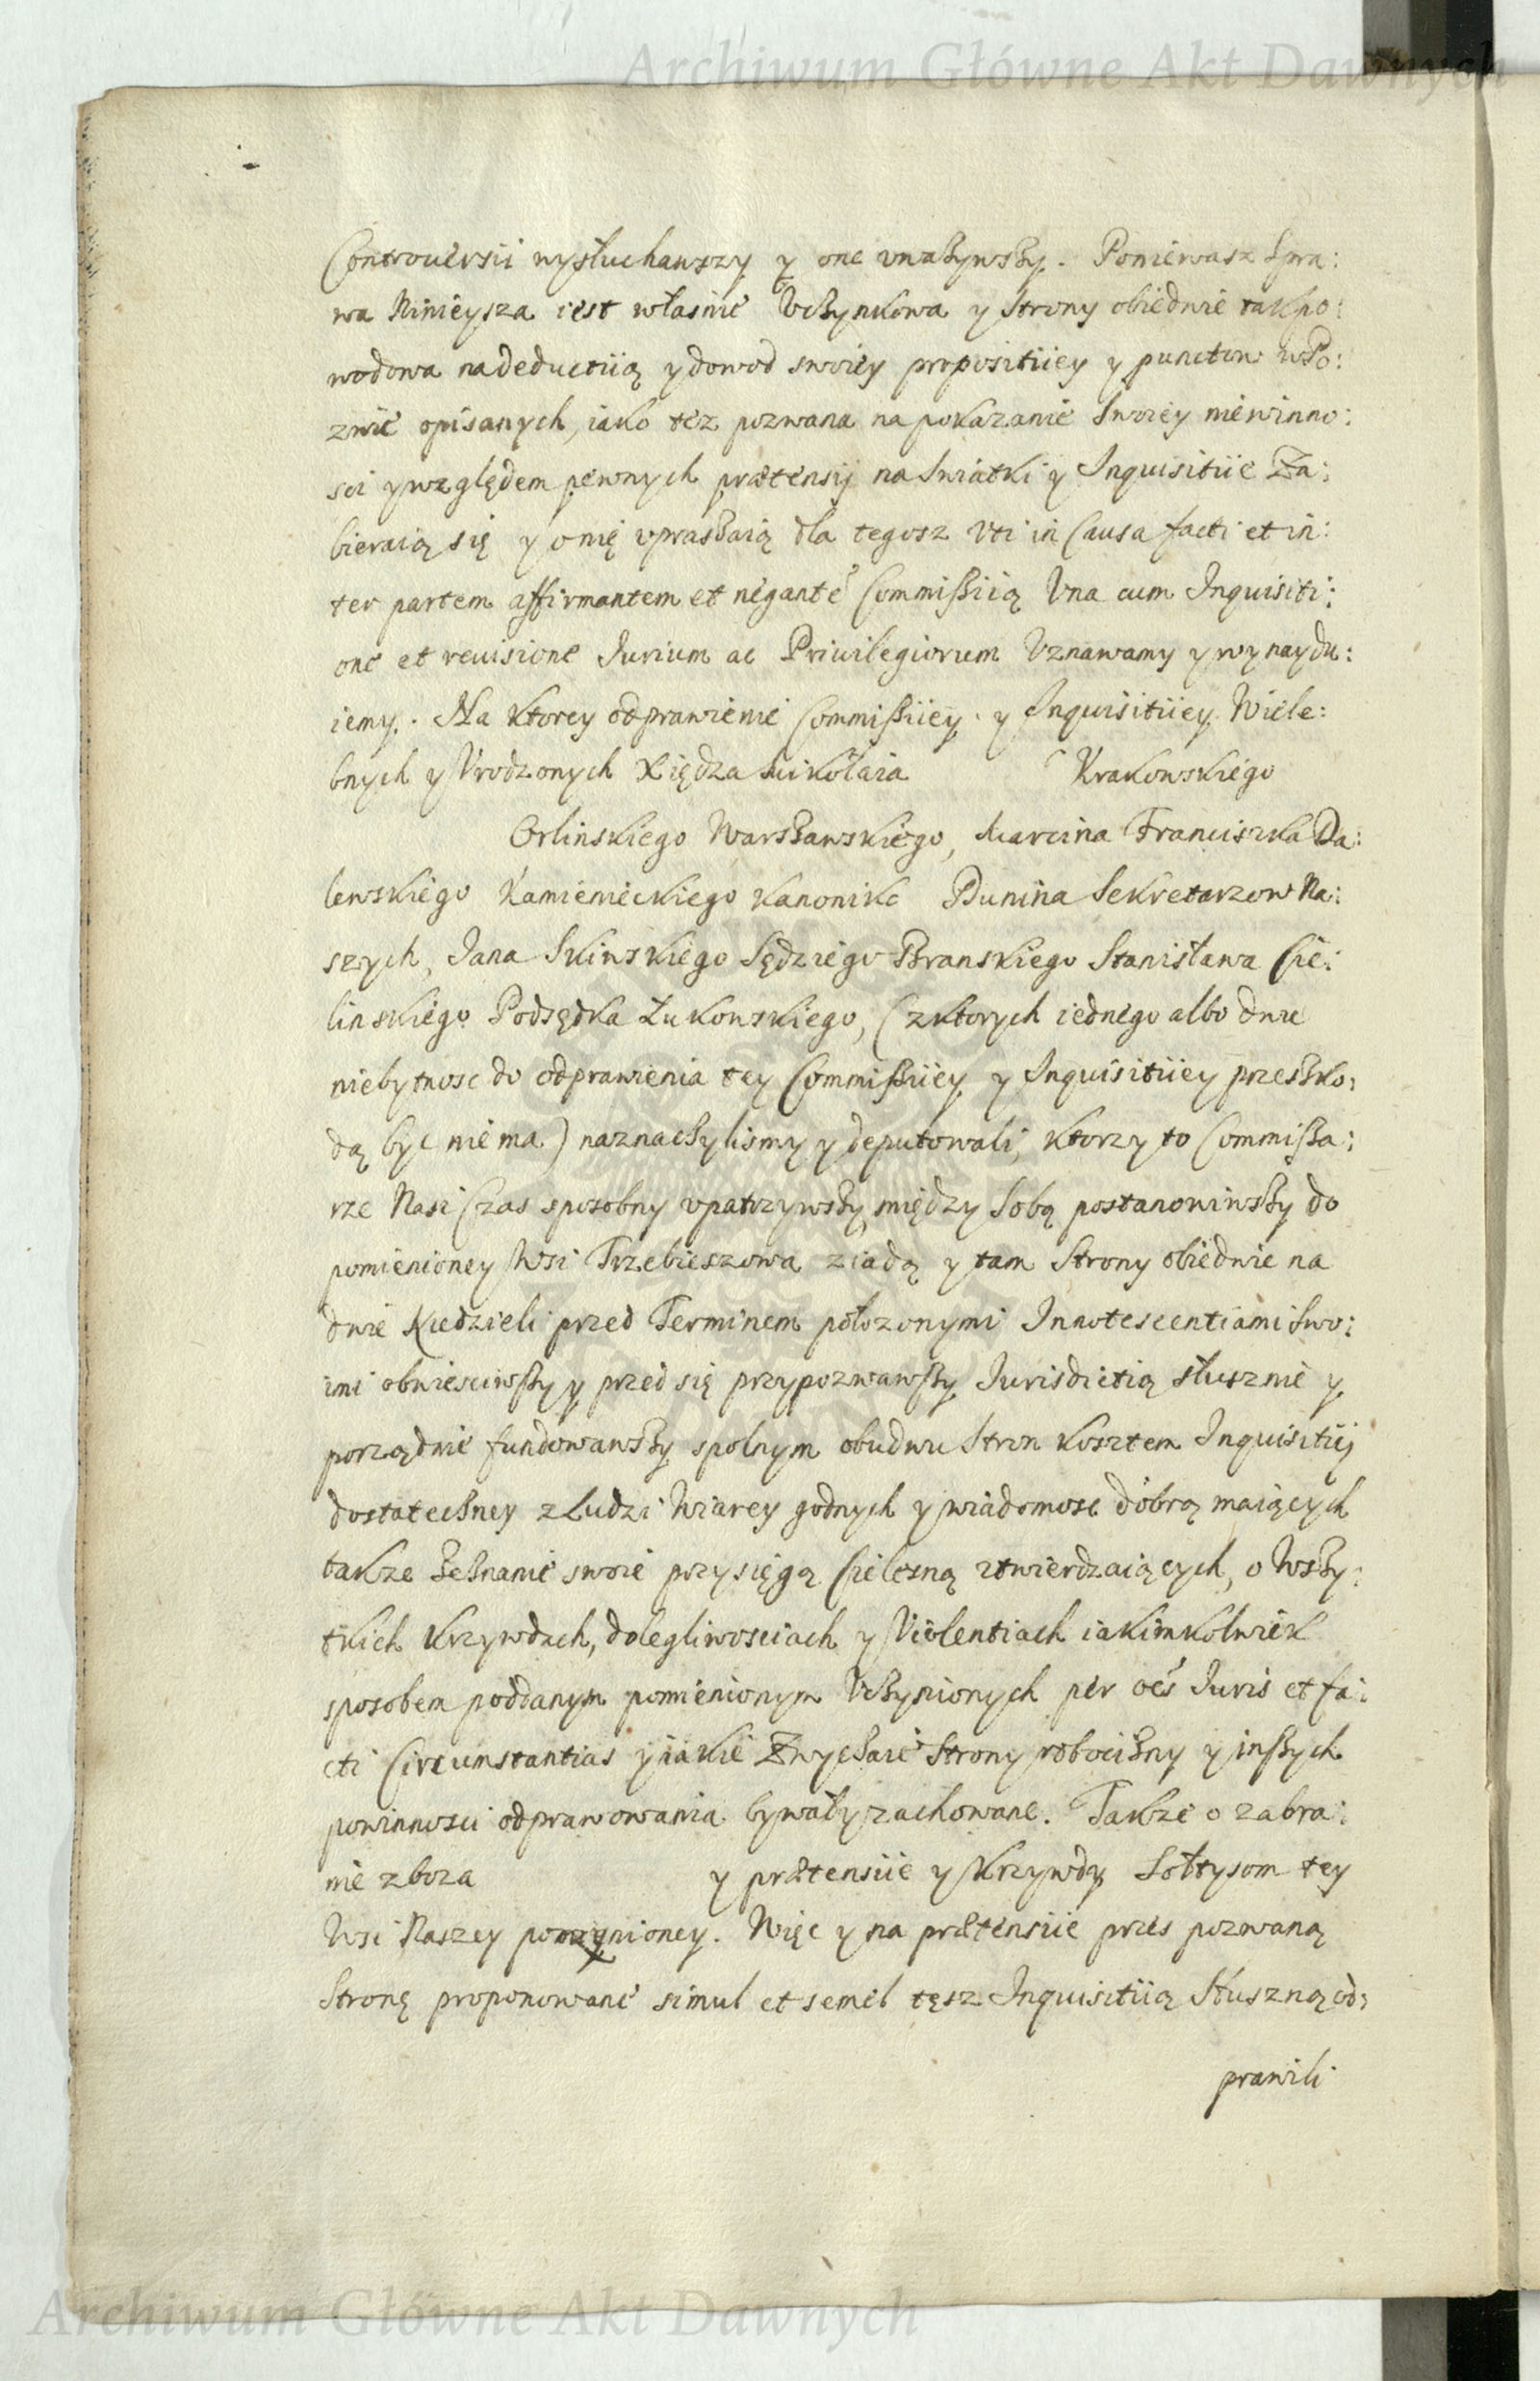 Archiwum Główne Akt Dawnych
Controuersii wysłuchawszy y one vważywszy. Poniewasz Spra:
wa Ninieysza iest własnie Vczynkowa y Strony obiedwie tak po:
wodowa na deductiią y dowod swoiey propositiiey y punctow w Po:
zwie opisanych, iako tez pozwana na pokazanie Swoiey niewinno:
sci y względem pewnych prætensij na Swiatki y Inquisitiie Za:
bieraią się y o nię vpraszaią dla tegosz Vti in Causa facti et in:
ter partem affirmantem et negantē Commissiią Vna cum Inquisiti:
one et reuisione Jurium ac Priuilegiorum Vznawamy y wynaydu:
iemy. Na ktorey odprawienie Commissiiey y Inquisitiiey Wiele:
bnych y Vrodzonych Xiędza Mikołaia Krakowskiego
Orlinskiego Warszawskiego, Marcina Franciszka Da:
lewskiego Kamienieckiego Kanonikc Dunina Sekretarzow Na:
szych, Jana Skiwskiego Sędziego Branskiego Stanisława Cie:
linskiego Podsędka Łukowskiego, (z ktorych iednego albo dwu
niebytnosc do odprawienia tey Commissiiey y Inquisitiiey przeszko:
dą być nie ma) naznaczylismy y deputowali, ktorzy to Commissa:
rze Nasi Czas sposobny vpatrzywszy między Sobą postanowiwszy do
pomienioney Wsi Trzebieszowa ziadą y tam Strony obiedwie na
dwie Niedzieli przed Terminem położonymi Innotescentiami Swo:
imi obwiesciwszy y przed się przypozwawszy Jurisdictią słusznie y
porządnie fundowawszy spolnym obudwu Stron kosztem Inquisitij
dostateczney z Ludzi Wiarey godnych y wiadomosc dobrą maiących
takze zeznanie swoie przysięgą Cielesną ztwierdzaiących, o Wszy:
tkich Krzywdach, dolegliwosciach y Violentiach iakimkolwiek
sposobem poddanym pomienionym Vczynionych per oēs Juris et fa:
cti Circumstantias y iakie Zwyczaie Strony robocizny y inszych
powinnosci odprawowania bywały zachowane. Takze o zabra:
nie zboza y prætensiie y Krzywdy Sołtysom tey
Wsi Naszey poczynioney. Więc y na prætensiie przes pozwaną
Stronę proponowane simul et semel tęsz Inquisitiią Słuszną od:
prawili
Archiwum Główne Akt Dawnych